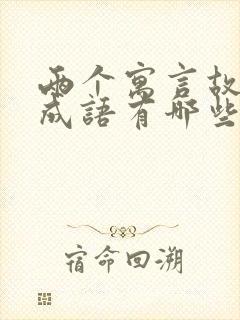 两个寓言故
成語有哪些
宿命回溯